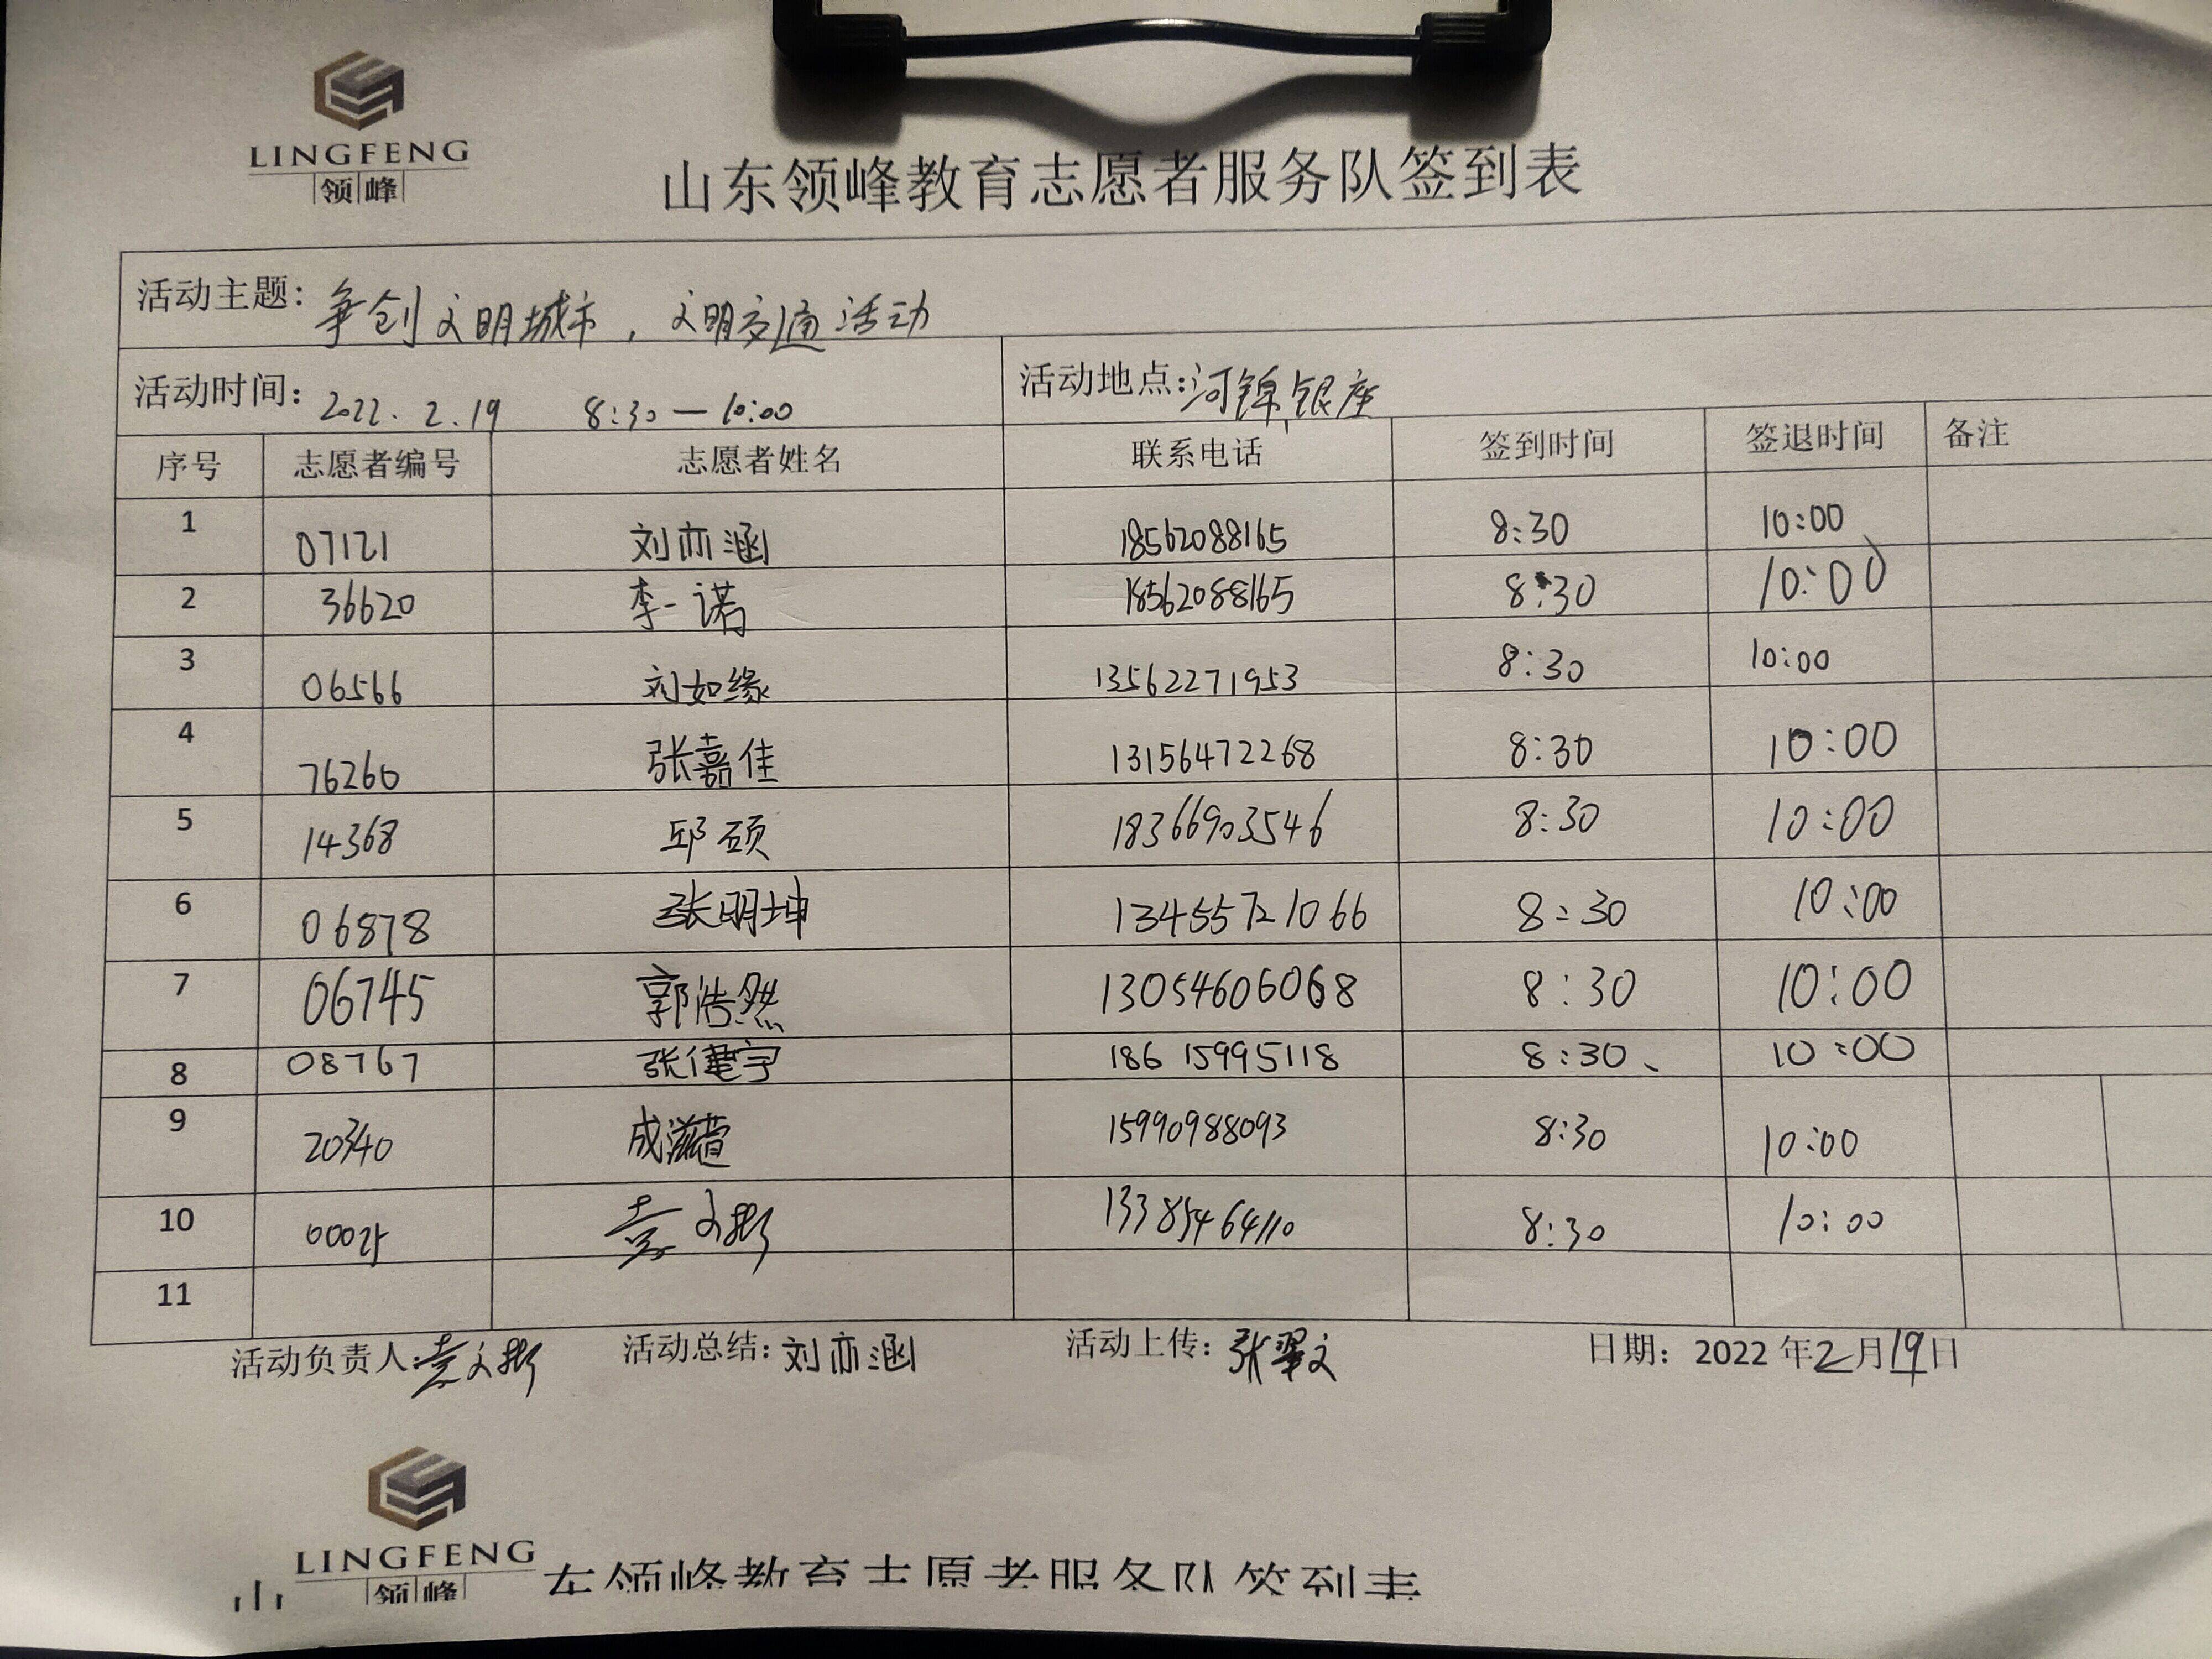 LINGFENG
领峰
山东领峰教育志愿者服务队签到表
活动主题: 争创文明城市，文明交通活动
活动时间: 2022.2.19 8:30—10:00 活动地点:河锦银座
序号 志愿者编号 志愿者姓名 联系电话 签到时间 签退时间 备注
1 07121 刘亦涵 18562088165 8:30 10:00
2 36620 李一诺 18562088165 8:30 10:00
3 06566 刘如缘 13562271953 8:30 10:00
4 76260 张嘉佳 13156472268 8:30 10:00
5 14368 邱硕 18366903546 8:30 10:00
6 06878 张明坤 13455721066 8:30 10:00
7 06745 郭浩然 13054606068 8:30 10:00
8 08767 张健宇 18615995118 8:30、 10:00
9 20340 成 15990988093 8:30 10:00
10 袁文彬 13385464110 8:30 10:00
11
活动负责人:袁文彬 活动总结:刘亦涵 活动上传:张翠文 日期: 2022年2月19日
LINGFENG
领峰
山东领峰教育志愿者服务队签到表